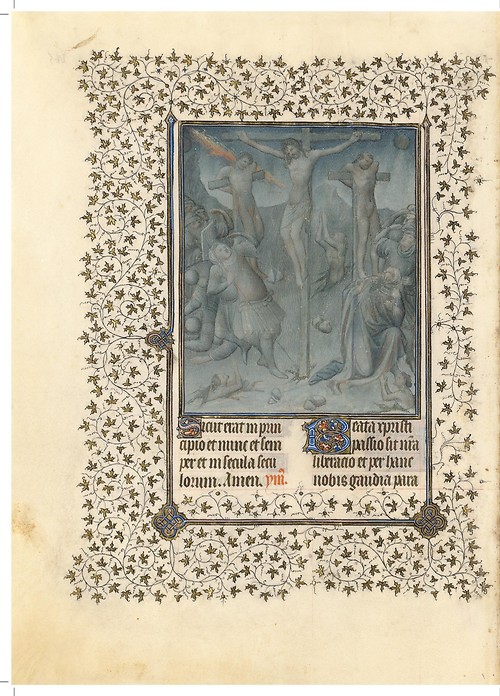 Sicut erat in prin
cipio et nunc et sem
per et in secula secu
lorum. Amen. ym̄.
Beata xpristi
passio sit nr̄a
liberacio et per hanc
nobis gaudia para